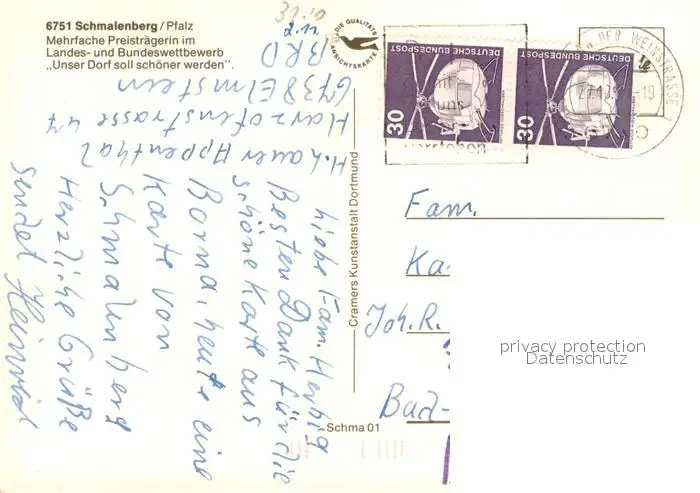 6751 Schmalenberg / Pfalz
Mehrfache Preisträgerin im
Landes- und Bundeswettbewerb
„Unser Dorf soll schöner werden".
31.10
2.11.
DIE QUALITÄTS
ANSICHTSKARTE
DEUTSCHE BUNDESPOST
30
DEUTSCHE BUNDESPOST
30
DER WEINSTRASSE
-19
verstehen
H. Lauer Appenthal
Harzofenstrasse 47
6738 Elmstein
BRD
Liebe Fam. Herbig
Besten Dank für die
schöne Karte aus
Borna, heute eine
Karte von
Schmalenberg
Herzliche Grüße
sendet Heinrich
Cramers Kunstanstalt Dortmund
Schma 01
Fam.
Ka
Joh. R.
Bad-
privacy protection
Datenschutz